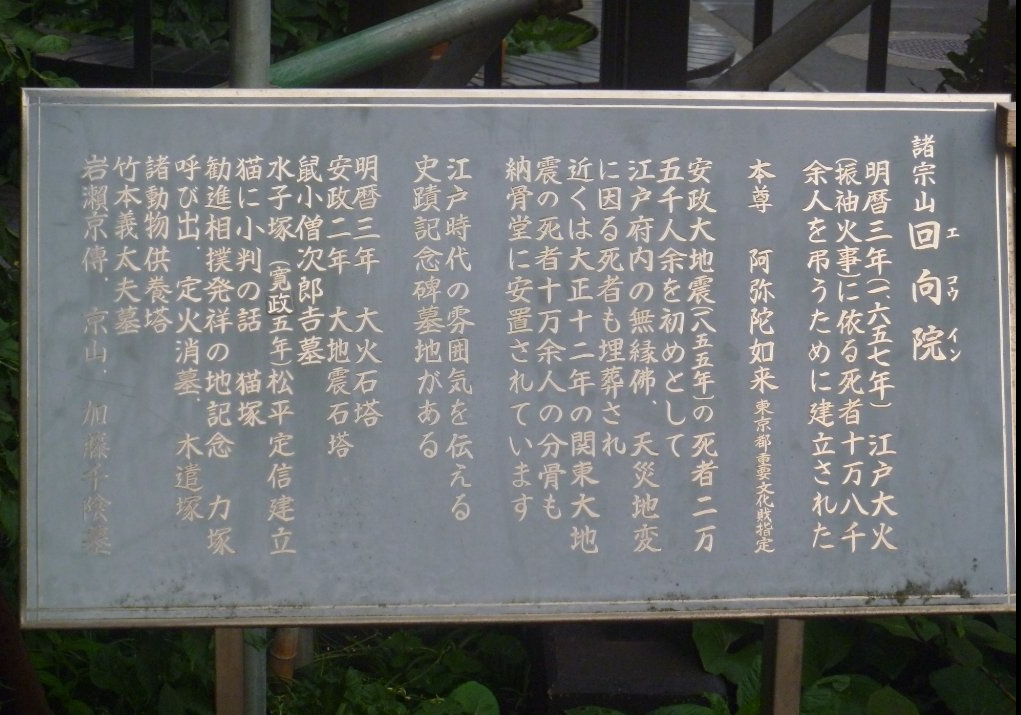 諸宗山 回向院
エコウイン
明暦三年(一六五七年) 江戸大火
(振袖火事)に依る死者十万八千
余人を弔うために建立された
本尊 阿弥陀如来 東京都重要文化財指定
安政大地震(八五五年)の死者二万
五千人余を初めとして
江戸府内の無縁佛、天災地変
に因る死者も埋葬され
近くは大正十二年の関東大地
震の死者十万余人の分骨も
納骨堂に安置されています
江戸時代の雰囲気を伝える
史蹟記念碑墓地がある
明暦三年 大火石塔
安政二年 大地震石塔
鼠小僧次郎吉墓
水子塚(寛政五年)松平定信建立
猫に小判の話 猫塚
勧進相撲発祥の地記念 力塚
呼び出、定火消墓、木遣塚
諸動物供養塔
竹本義太夫墓
岩瀬京傳、京山、加藤千蔭墓